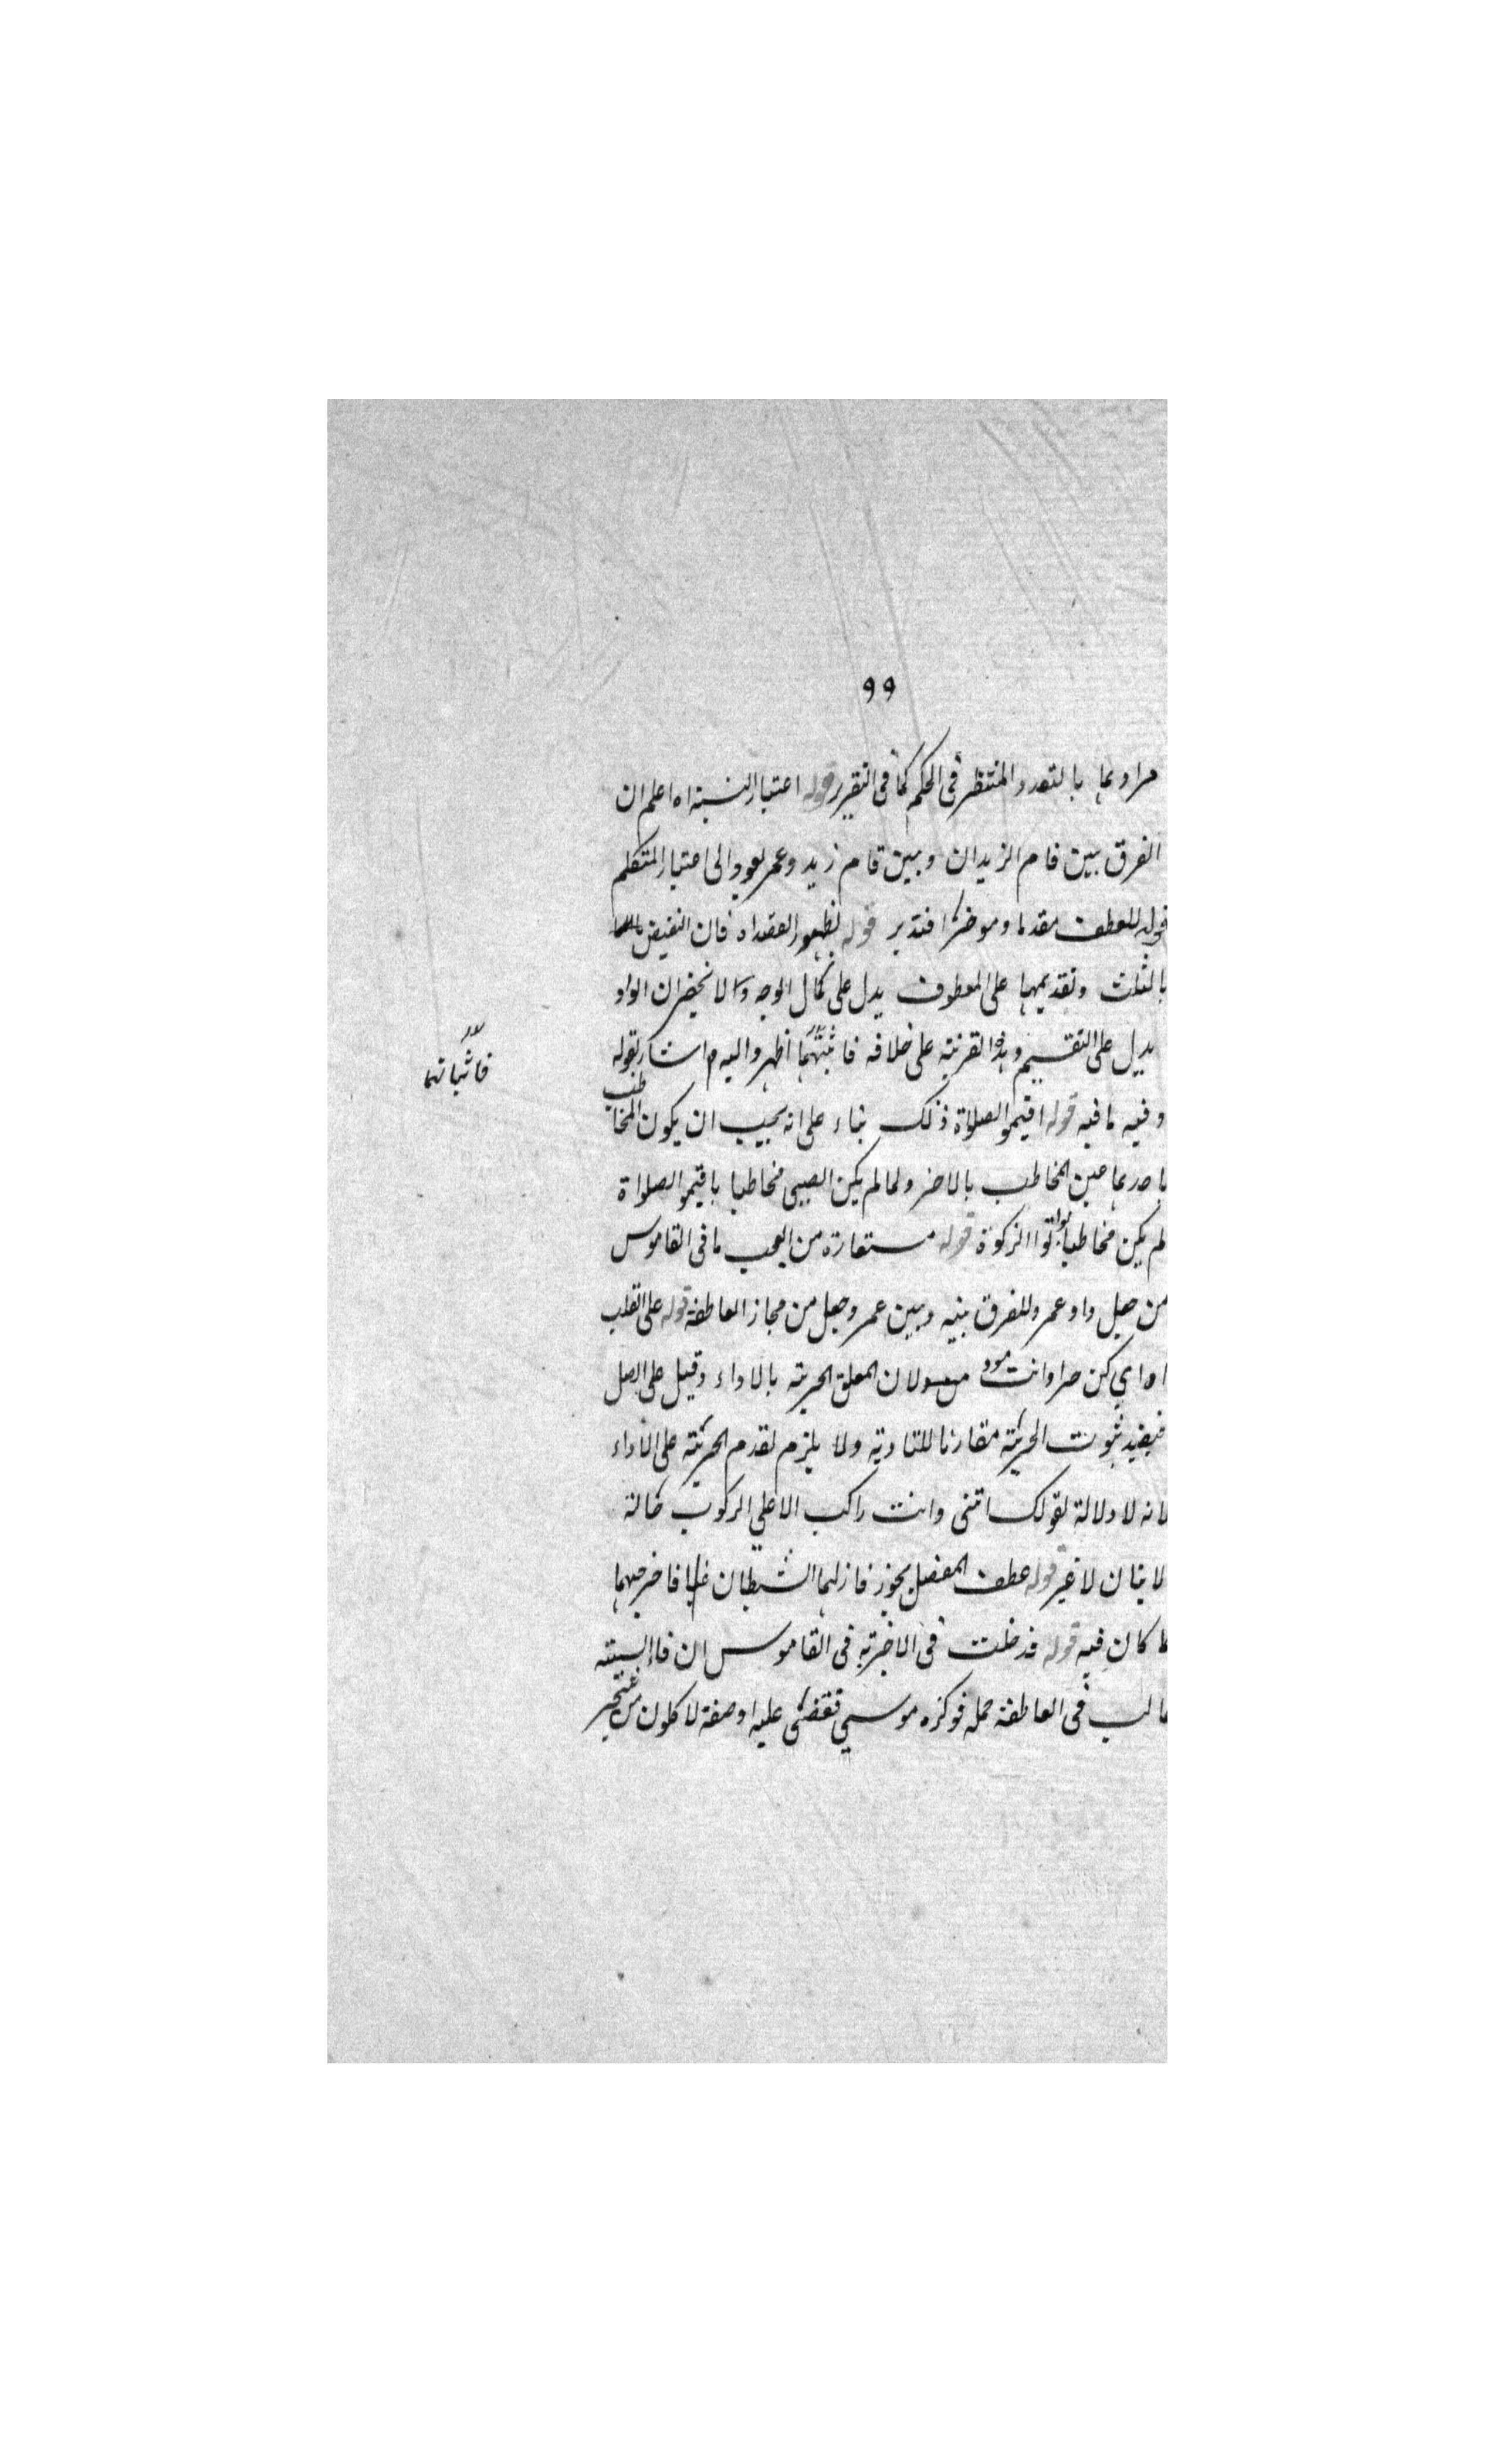 ٩٩
مرادهما بالتعدد المنتظر في الحكم كما في التقرير قوله اعتبار النسبة اه اعلم ان
الفرق بين قام الزيدان وبين قام زيد وعمر يعود الى اعتبار المتكلم
قوله للعطف مقدما وموخرا فتدبر قوله لظهور العقد اه فان النقيض
بالثلث وتقديمها على المعطوف يدل على كمال الوجه الانحضران الواو
يدل على التقسيم وهذه القرينة على خلافه فاثبتهما اظهر واليه اشار بقوله
فاثباتهما
وفيه ما فيه قوله اقيموا الصلاة ذلك بناء على انه يجب ان يكون المخاطب
باحدهما عين المخاطب بالاخر ولما لم يكن الصبي مخاطبا باقيموا الصلواة
لم يكن مخاطبا بواتوا الزكوة قوله مستعارة من العجب ما في القاموس
من جعل واو عمرو للفرق بينه وبين عمر وجعل من مجاز العاطفة قوله على القلب
اه اي كن حرا وانت مود لان المعلق الحرية بالاداء وقيل على الاصل
فيفيد ثبوت الحرية مقارنا للتادية ولا يلزم تقدم الحرية على الاداء
لانه لا دلالة لقولك اتنى وانت راكب الا على الركوب حالة
الاتيان لا غير قوله عطف المفصل نحو فازلهما الشيطان عنها فاخرجهما
مما كان فيه قوله فدخلت في الاخرة في القاموس ان فا السببية
غالب في العاطفة جملة فوكزه موسى فقضى عليه او صفة لاكلون من شجر